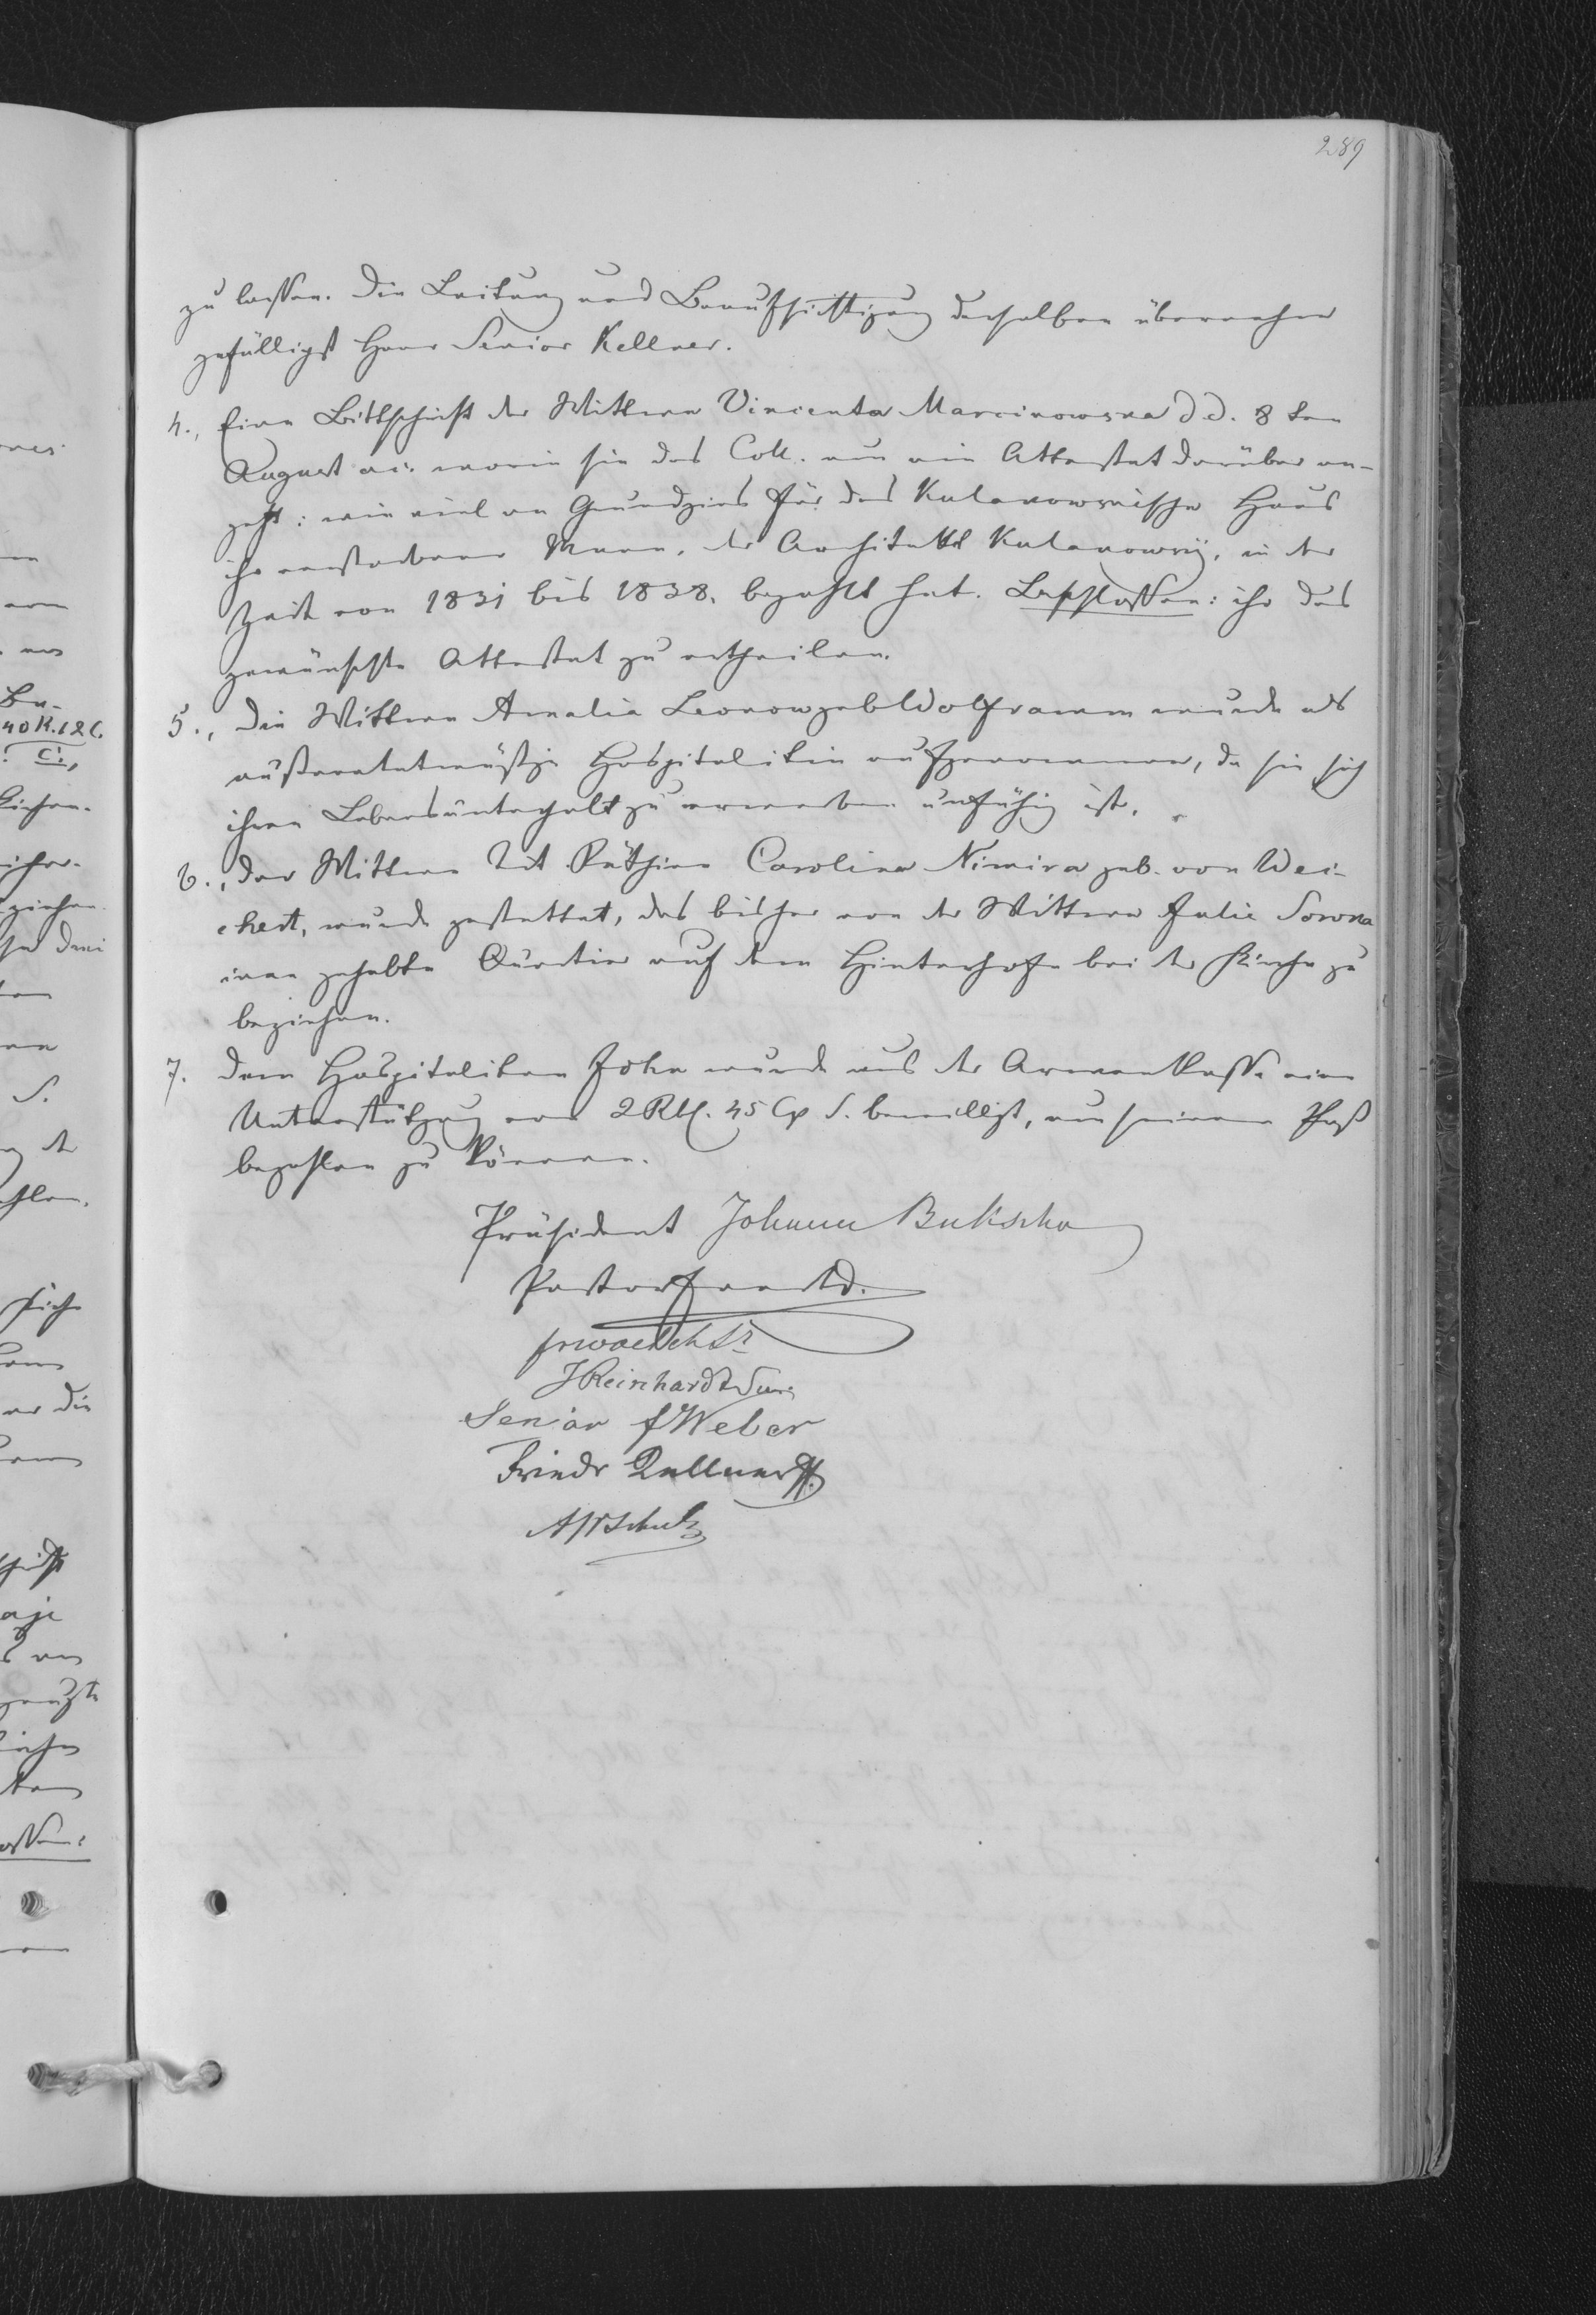 289
zu lassen. Die Leitung und Beaufsichtigung derselben übernahm
gefälligst Herr Senior Kellner.
4., Eine Bittschrift der Wittwe Vincenta Marcinowska d d. 8 ten
August a.c. worin sie das Coll. um ein Attestat darüber an-
geht: wie viel an Grundzins für das Kulakowskische Haus
ihr verstorbener Mann, der Architekt Kulakowsky, in der
Zeit von 1831 bis 1838. bezahlt hat. Beschlossen: ihr das
gewünschte Attestat zu ertheilen.
5., Die Wittwe Amalia Leonow geb Wolframm wurde als
außeretatmäßige Hospitalitin aufgenommen, da sie sich
ihren Lebensunterhalt zu erwerben unfähig ist.
6., Der Wittwe Tit Räthin Carolina Nimira geb. von Wei-
chert, wurde gestattet, das bisher von der Wittwe Julie Soroka
inne gehabte Quartier auf dem Hinterhofe bei der Kirche zu
beziehen.
7. Dem Hospitaliten John wurde aus der Armenkasse eine
Unterstützung von 2 Rbl. 45 Cp S. bewilligt, um seinen Paß
bezahlen zu können.
Präsident Johann Bukscha
Pastor
J Reinhardt Sen.
Senior f Weber
Friedr Kellner
A W Schulz
40 K.
S.